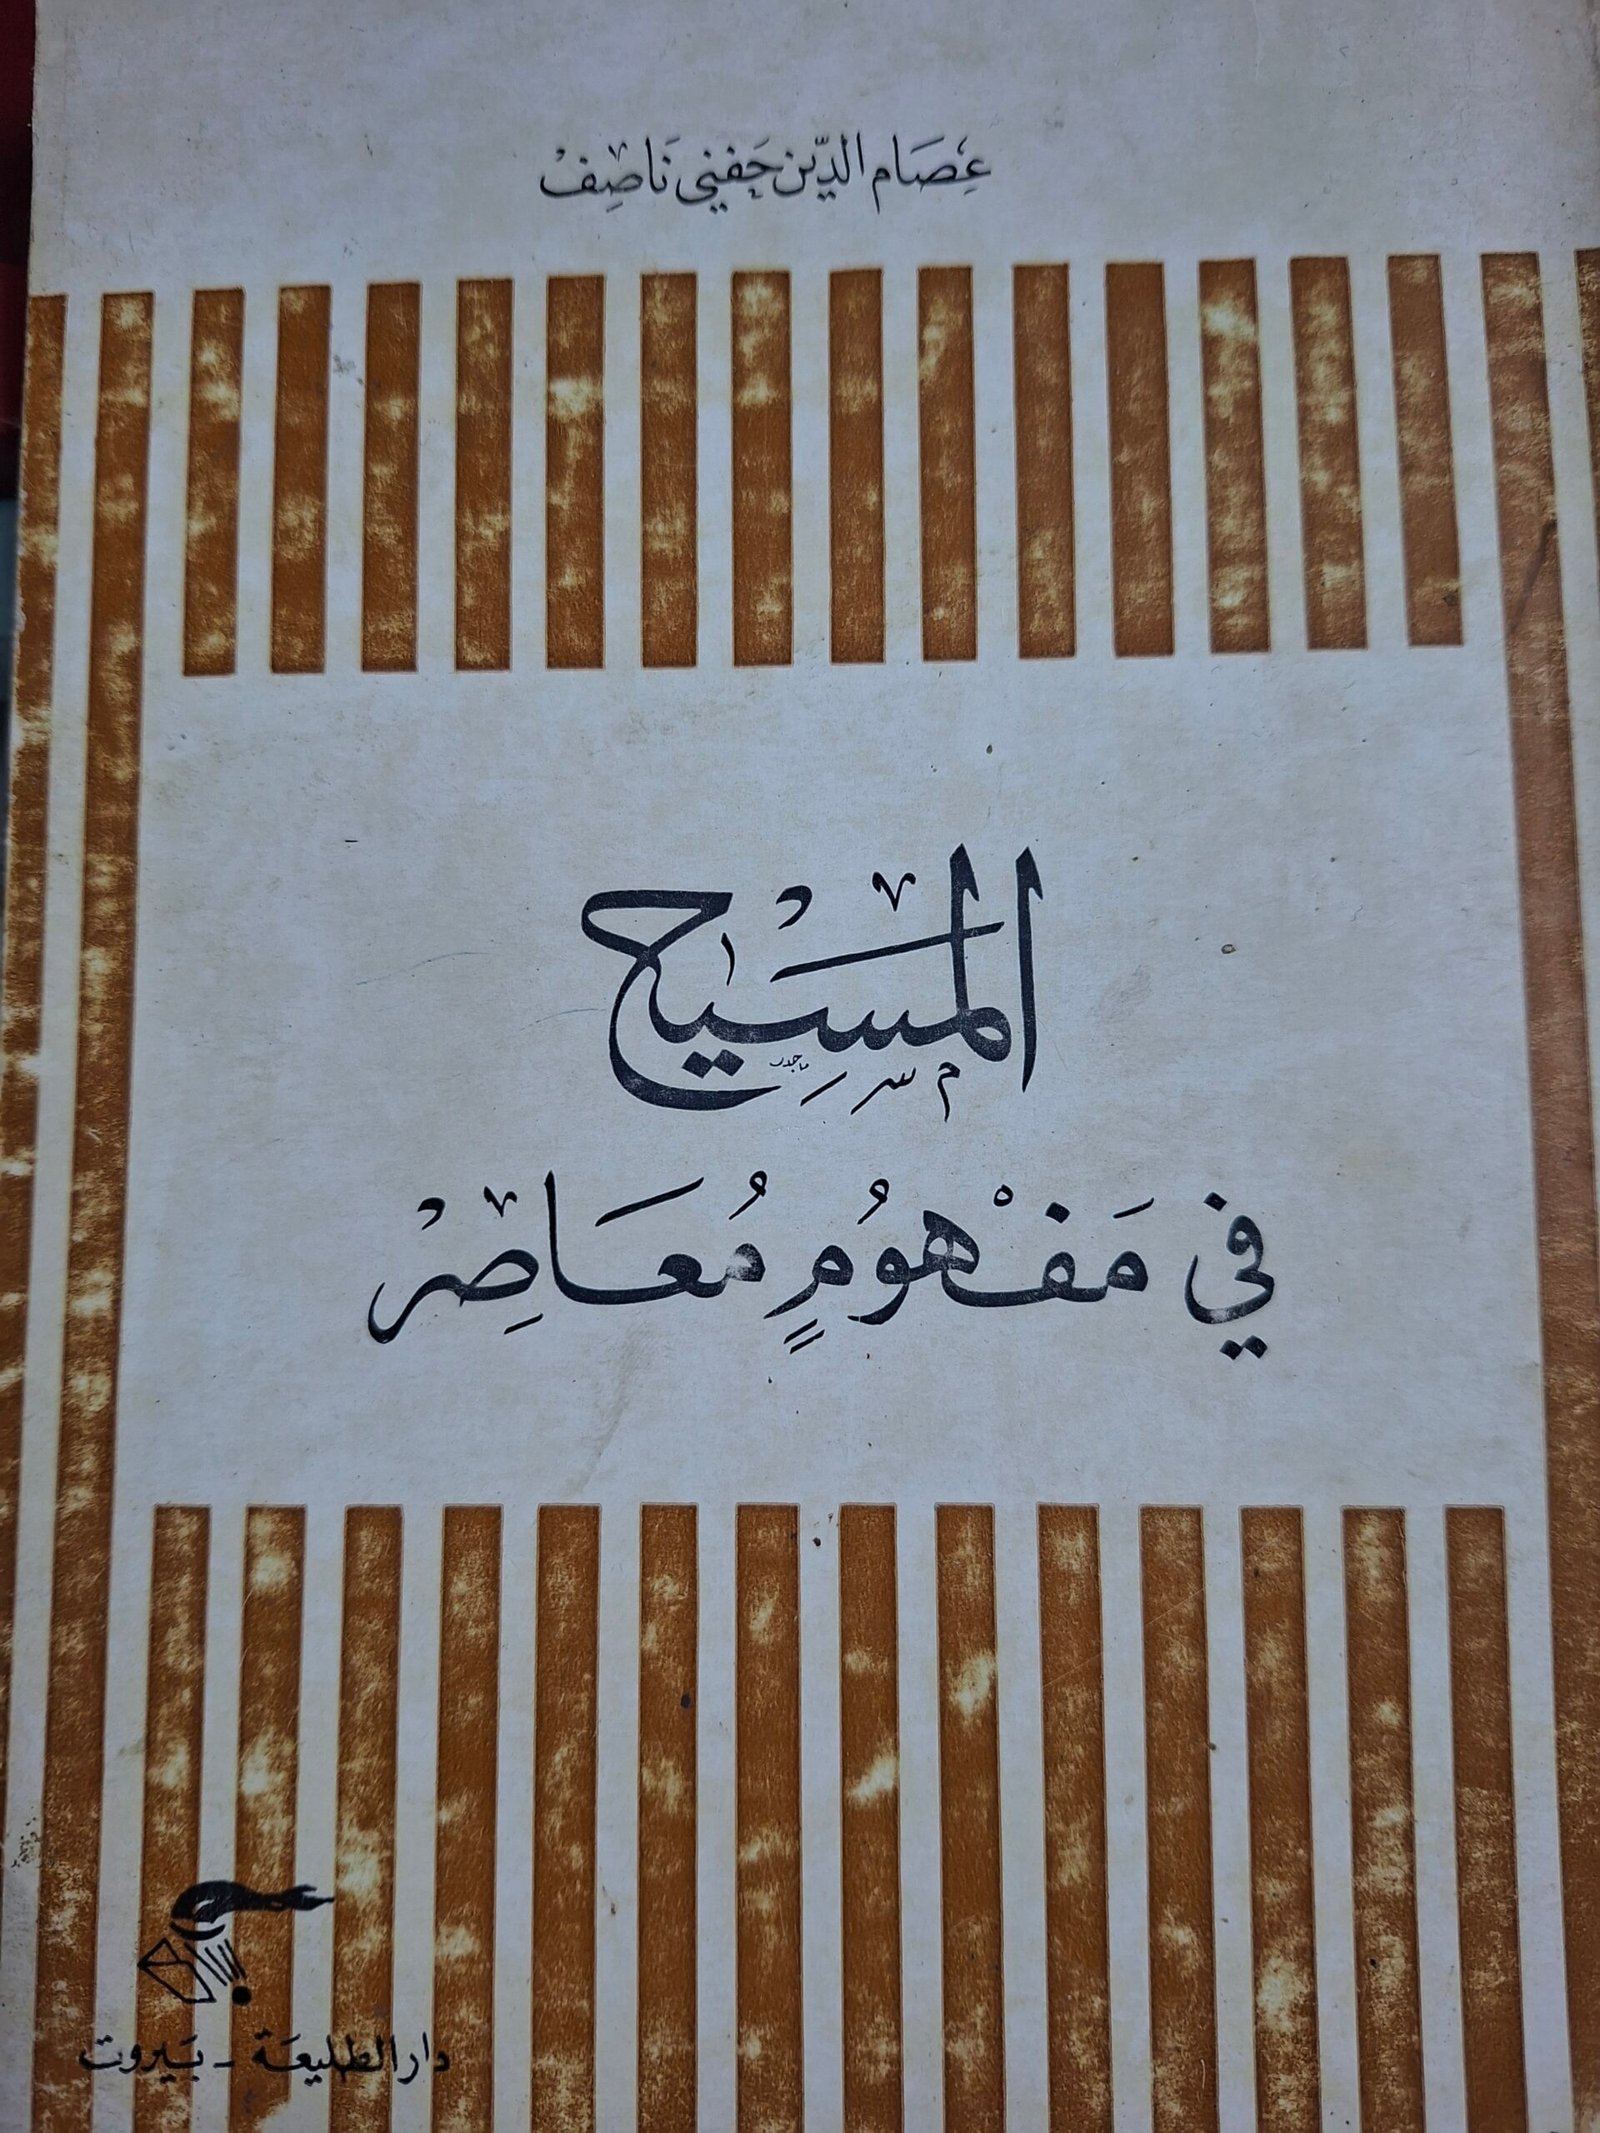 عِصَام الدِّين حَفني نَاصِفْ
المَسِيح
في مَفْهُومٍ مُعَاصِرْ
دار الطليعَة - بَيروت